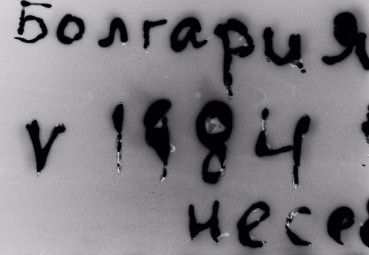 Болгария
V 1984
несе